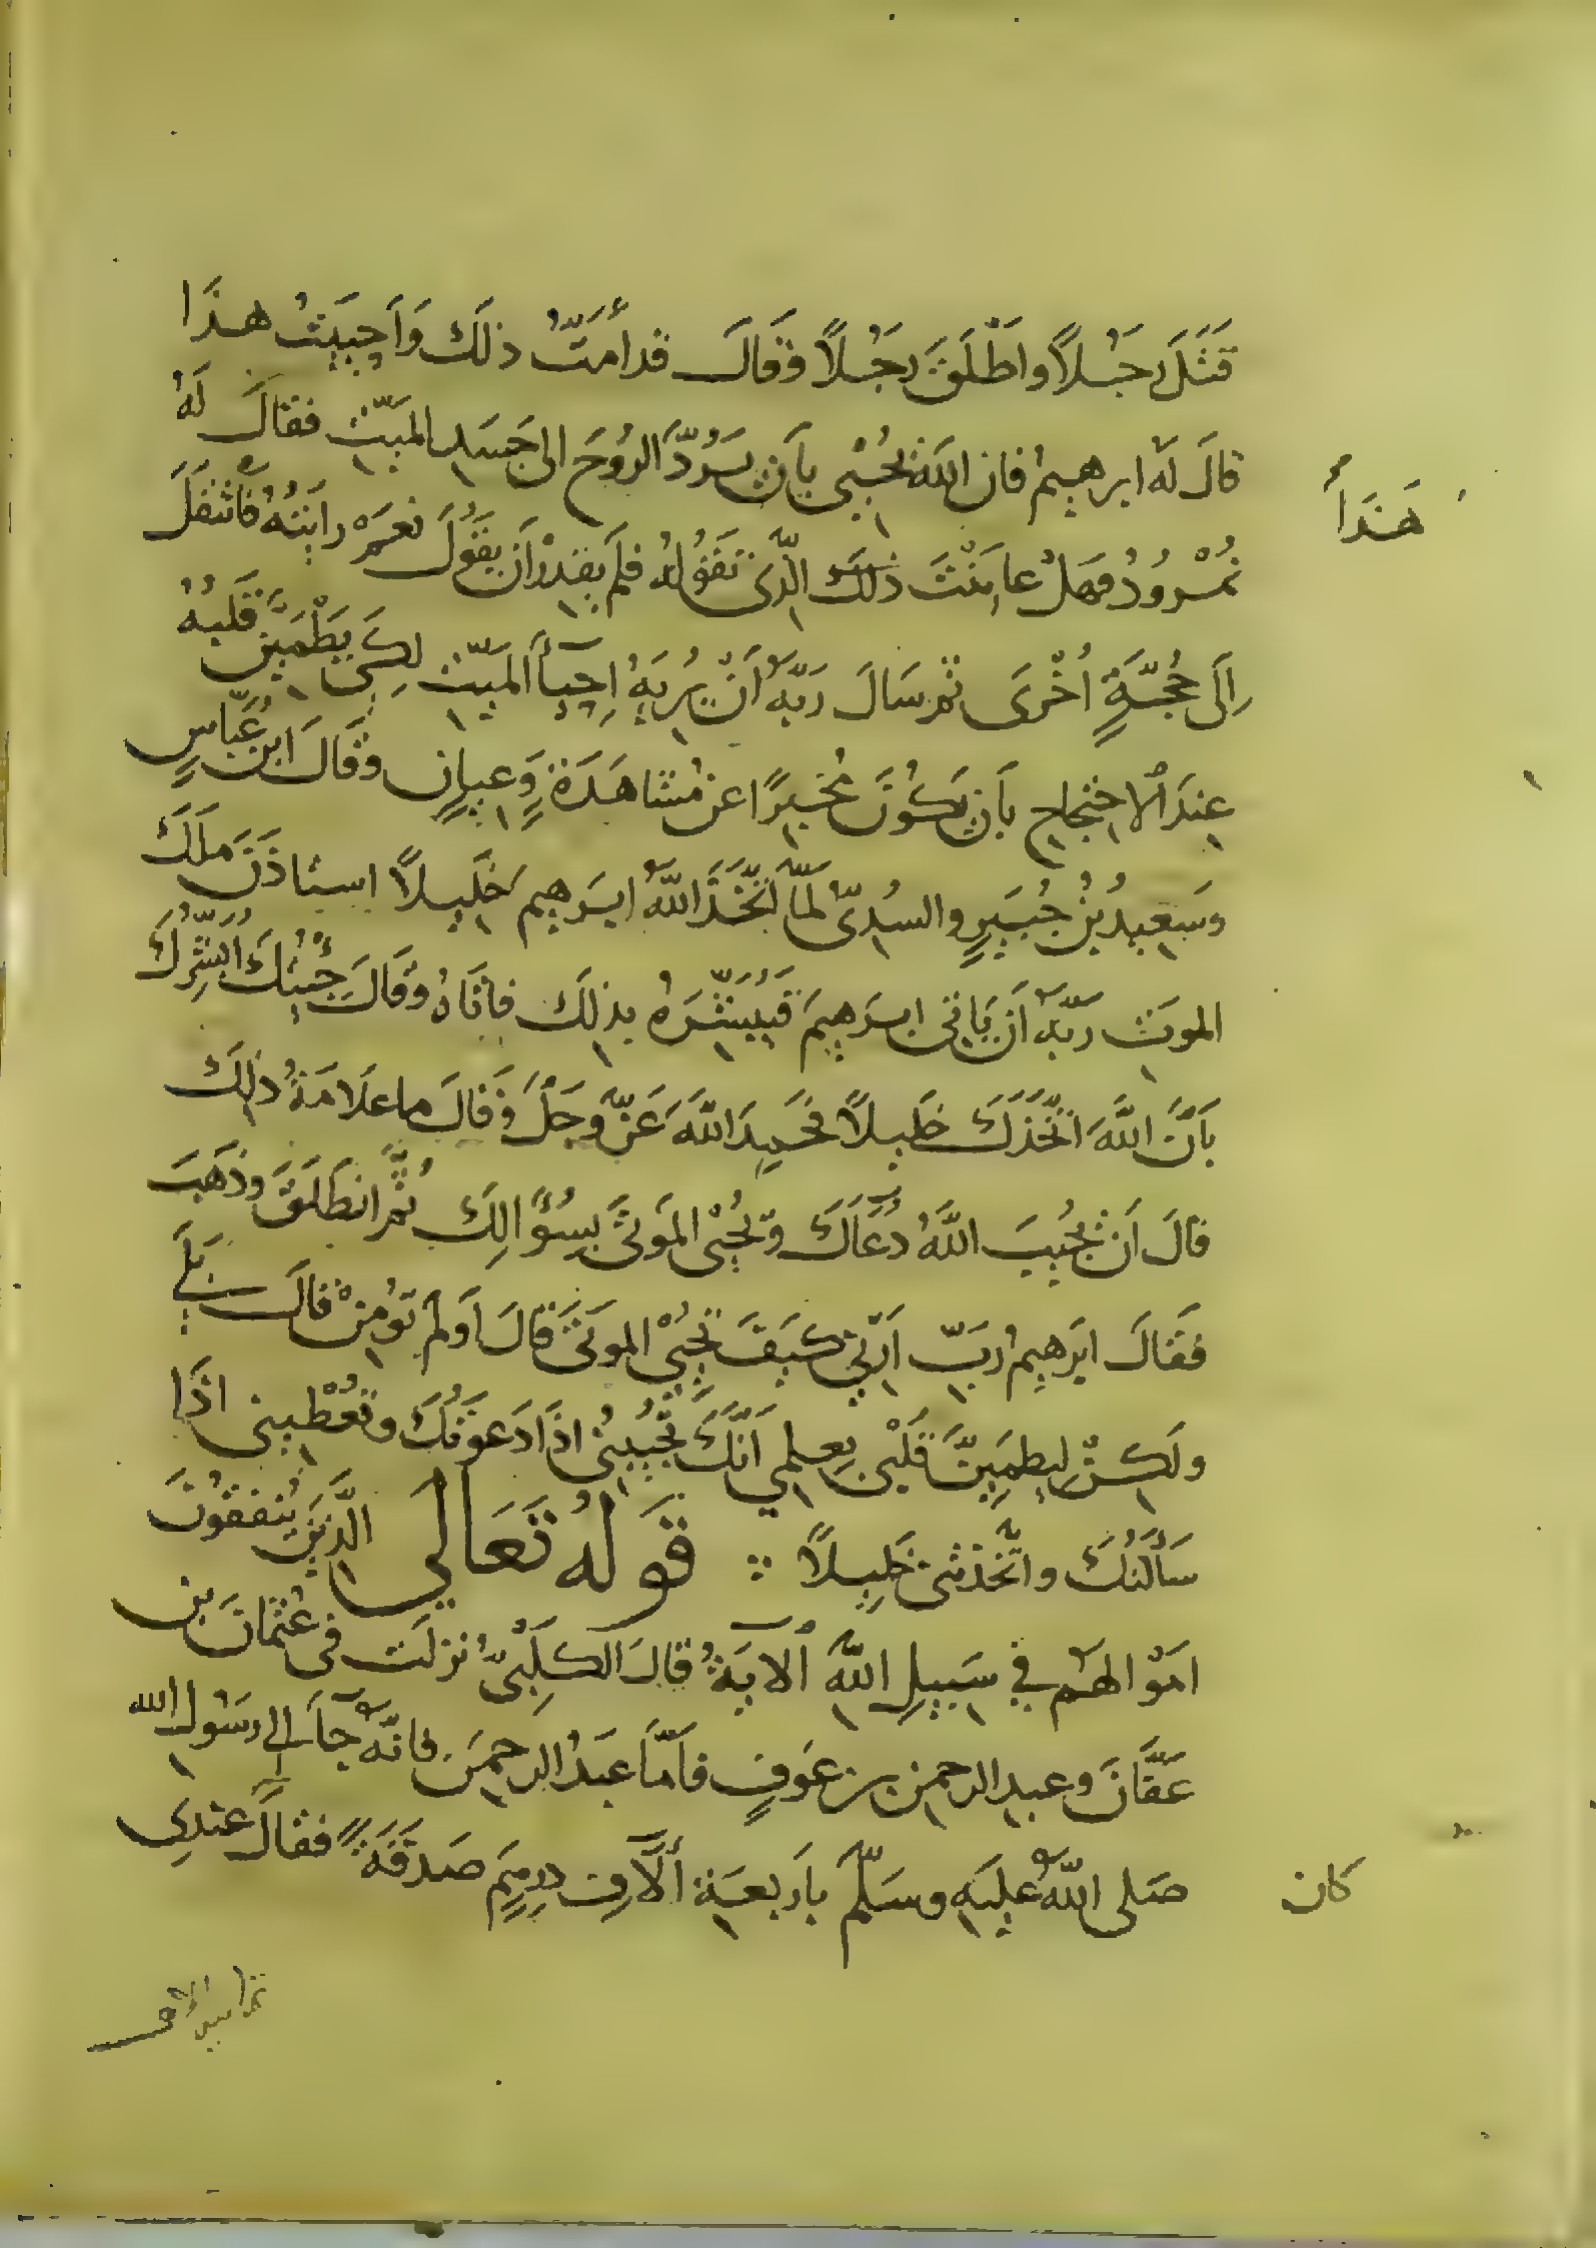 قَتَلَ رَجُلاً واطْلَقَ رَجُلاً وَقَالَ قد أمَتُّ ذلَكَ وَاَحييَتُ هذَا
قالَ لَهُ ابرهيمُ فان اللهَ يُحْيى بِاَن يَرُدَّ الرُوحَ الى جَسَدِ الميّتِ فقالَ لَهُ
نُمْرودُ فهَلْ عايَنْتَ ذلكَ الّذى تَقُولُهُ فلم يقدِرْ اَن يقُولَ نعَم رايتُهُ فانتقَلَ
اِلَى حُجَّةٍ اُخْرَى ثم سَالَ رَبَّهُ اَنْ يُرِيَهُ اِحيآَ الميّتِ لِكَى يَطْمَئِنَّ قَلبُهُ
عِندَ الاحتجاجِ بِاَن يَكُونَ مُخبِرًا عن مُشاهَدَةٍ وَعِيانٍ وقَالَ ابن عَبّاسٍ
وسَعيدُ بنُ جُبَيرٍ والسُدِىّ لَمّا اتَّخَذَ اللهُ ابرَهيم خَلِيلاً استاذَنَ مَلَكَ
الموتِ رَبَّهُ اَن يَاتى ابرَهِيمَ فَيُبَشِّرَهُ بِذلِكَ فاتَاهُ وقَالَ جِئْتُكَ اُبَشِّرُكَ
بِاَنَّ اللهَ اتَّخَذَكَ خَلِيلاً فحَمِدَ اللَّهَ عَزّ وجَلَّ وقَالَ ما عَلَامَةُ ذلِكَ
قالَ اَن يُجِيبَ اللَّهُ دُعَاكَ ويُحْيِىَ الموتَى بِسُؤالِكَ ثُمّ انطَلَقَ وذَهَبَ
فقَالَ ابرَهِيمُ رَبِّ اَرِنى كيَفَ تُحْيِى الموتَى قَالَ اَوَلَم تُومِنْ قالَ بَلَى
ولَكِن لِيطمَئِنَّ قَلْبى بِعِلمي اَنَّكَ تُجِيبُنى اذَا دَعوتُكَ وتُعْطِينى اذَا
سَاَلتُكَ واتَّخَذتَنى خَلِيلاً ∴ قَولُهُ تَعَالَى الَّذِينَ يُنفقُونَ
اَمْوالهَم في سَبِيلِ اللَّهِ الآيَةُ قالَ الكَلبىُّ نزلَت فى عُثمَانَ بن
عَفَّانَ وعبدِ الرحمنِ بن عَوفٍ فاَمّا عَبدُ الرحمَن فانَّهُ جآَ الى رسُولِ الله
صَلى اللهُ عليَهِ وسَلَّمَ بِاَربعَةِ آلَافِ دِرهِمٍ صَدقَةً فقالَ عندِى
هَذَا
كان